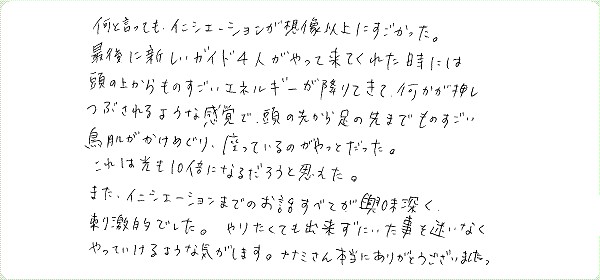 何と言っても、イニシエーションが想像以上にすごかった。
最後に新しいガイド4人がやって来てくれた時には
頭の上からものすごいエネルギーが降りてきて、何かが押し
つぶされるような感覚で、頭の先から足の先までものすごい
鳥肌がかけめぐり、座っているのがやっとだった。
これは光も10倍になるだろうと思えた。
また、イニシエーションまでのお話すべてが興味深く、
刺激的でした。やりたくても出来ずにいた事を迷いなく
やっていけるような気がします。ナナミさん本当にありがとうございました。